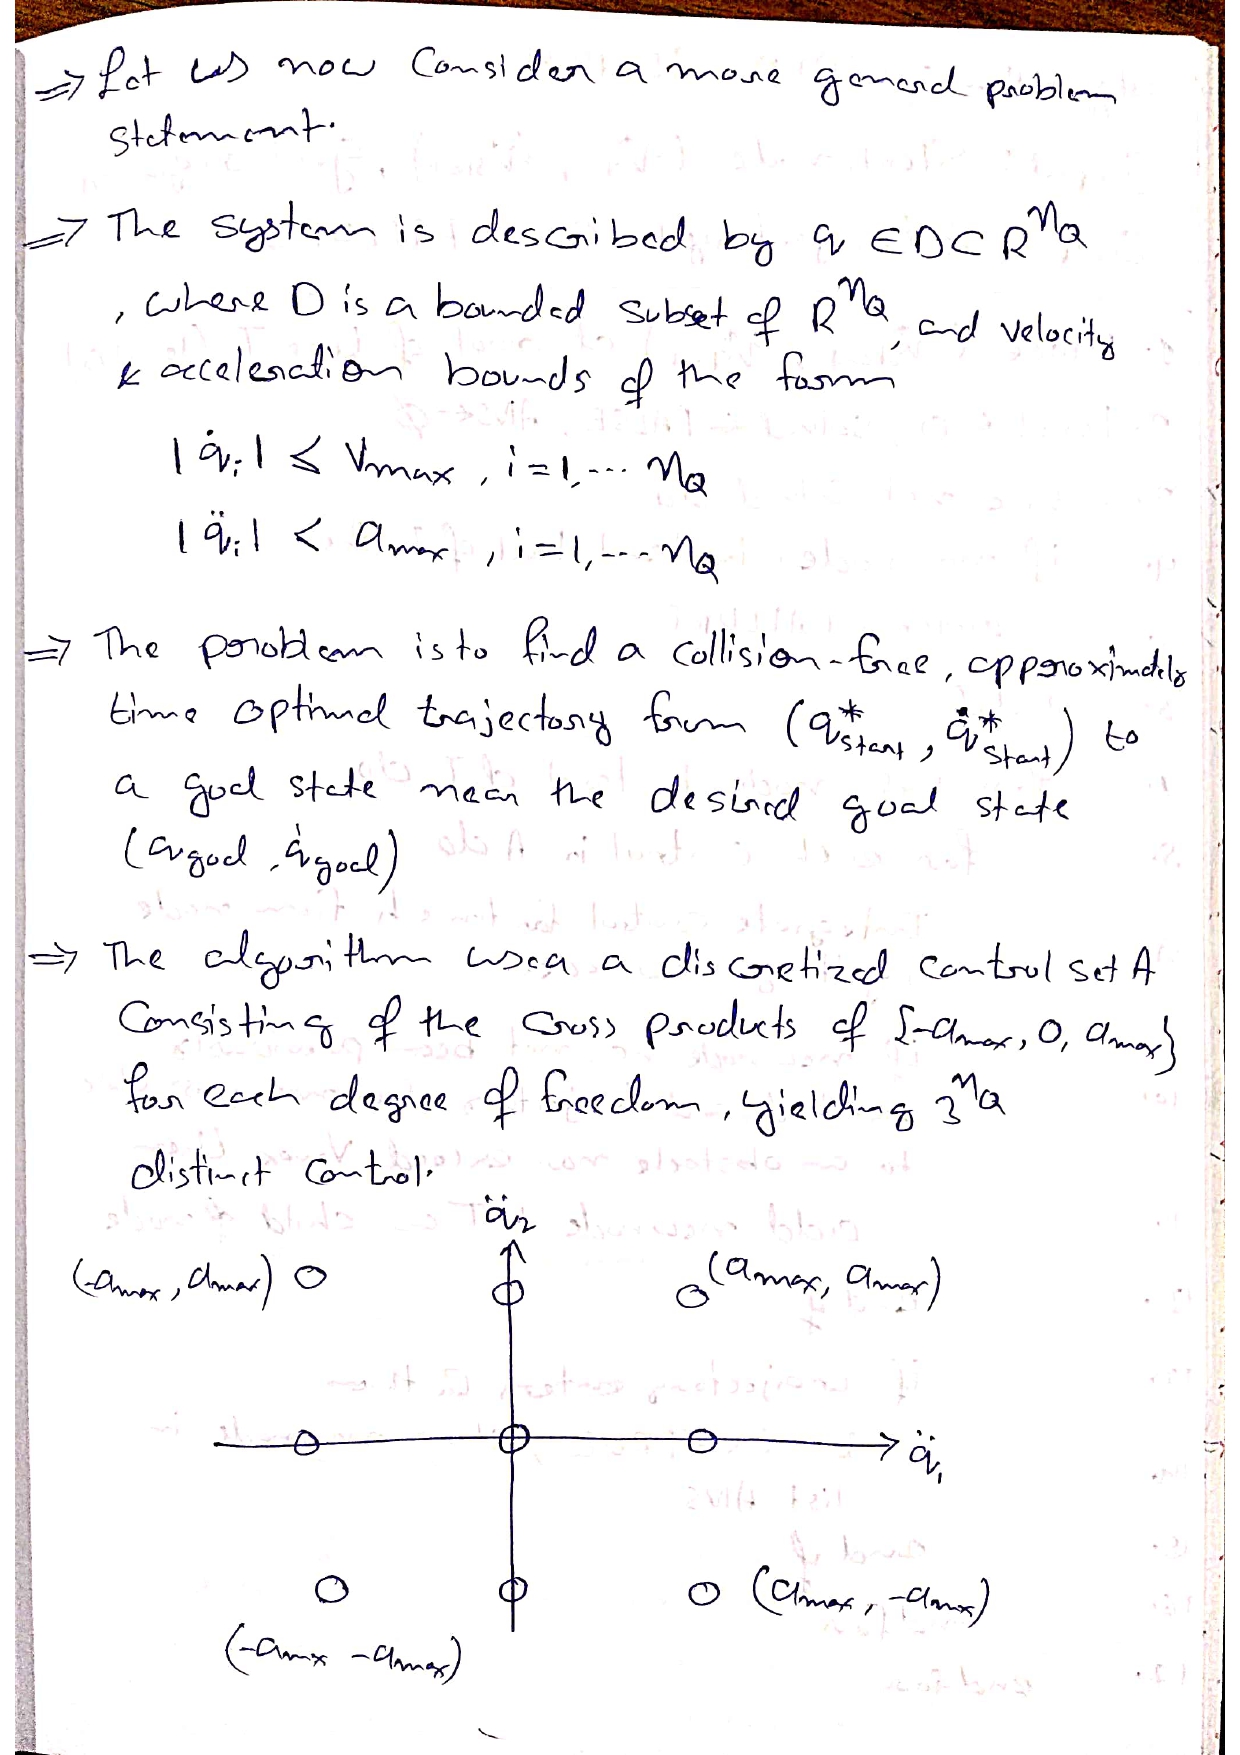 ⇒ Let us now Consider a more general problem
statement.
⇒ The system is described by q ∈ D ⊂ R^nQ
, where D is a bounded subset of R^nQ, and velocity
& acceleration bounds of the form
|q̇i| ≤ Vmax, i=1,... nQ
|q̈i| < amax, i=1,... nQ
⇒ The problem is to find a collision-free, approximately
time optimal trajectory from (q*start, q̇*start) to
a goal state near the desired goal state
(qgoal, q̇goal)
⇒ The algorithm uses a discretized control set A
Consisting of the cross products of {-amax, 0, amax}
for each degree of freedom, yielding 3^nQ
distinct control.
q̈2
(-amax, amax) (amax, amax)
q̈1
(amax, -amax)
(-amax -amax)